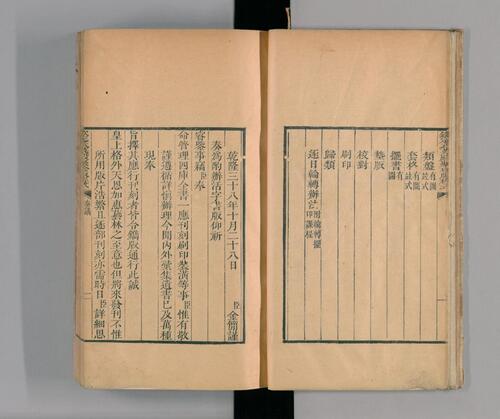 類盤 有圖 註式
套格 有圖 註式
擺書 圖
墊版
校對
刷印
歸類
逐日輪轉辦法 附輪轉擺印課程
乾隆三十八年十月二十八日
臣金簡謹
奏爲酌辦活字書版仰祈
睿鑒事竊臣奉
命管理四庫全書一應刊刻刷印裝潢等事臣惟有敬
謹遵循詳愼辦理今聞内外彙集遺書已及萬種
現奉
旨擇其應行刊刻者皆令鐫版通行此誠
皇上格外天恩加惠藝林之至意也但將來發刊不惟
所用版片浩繁且逐部刊刻亦需時日臣詳細思
奏議
一